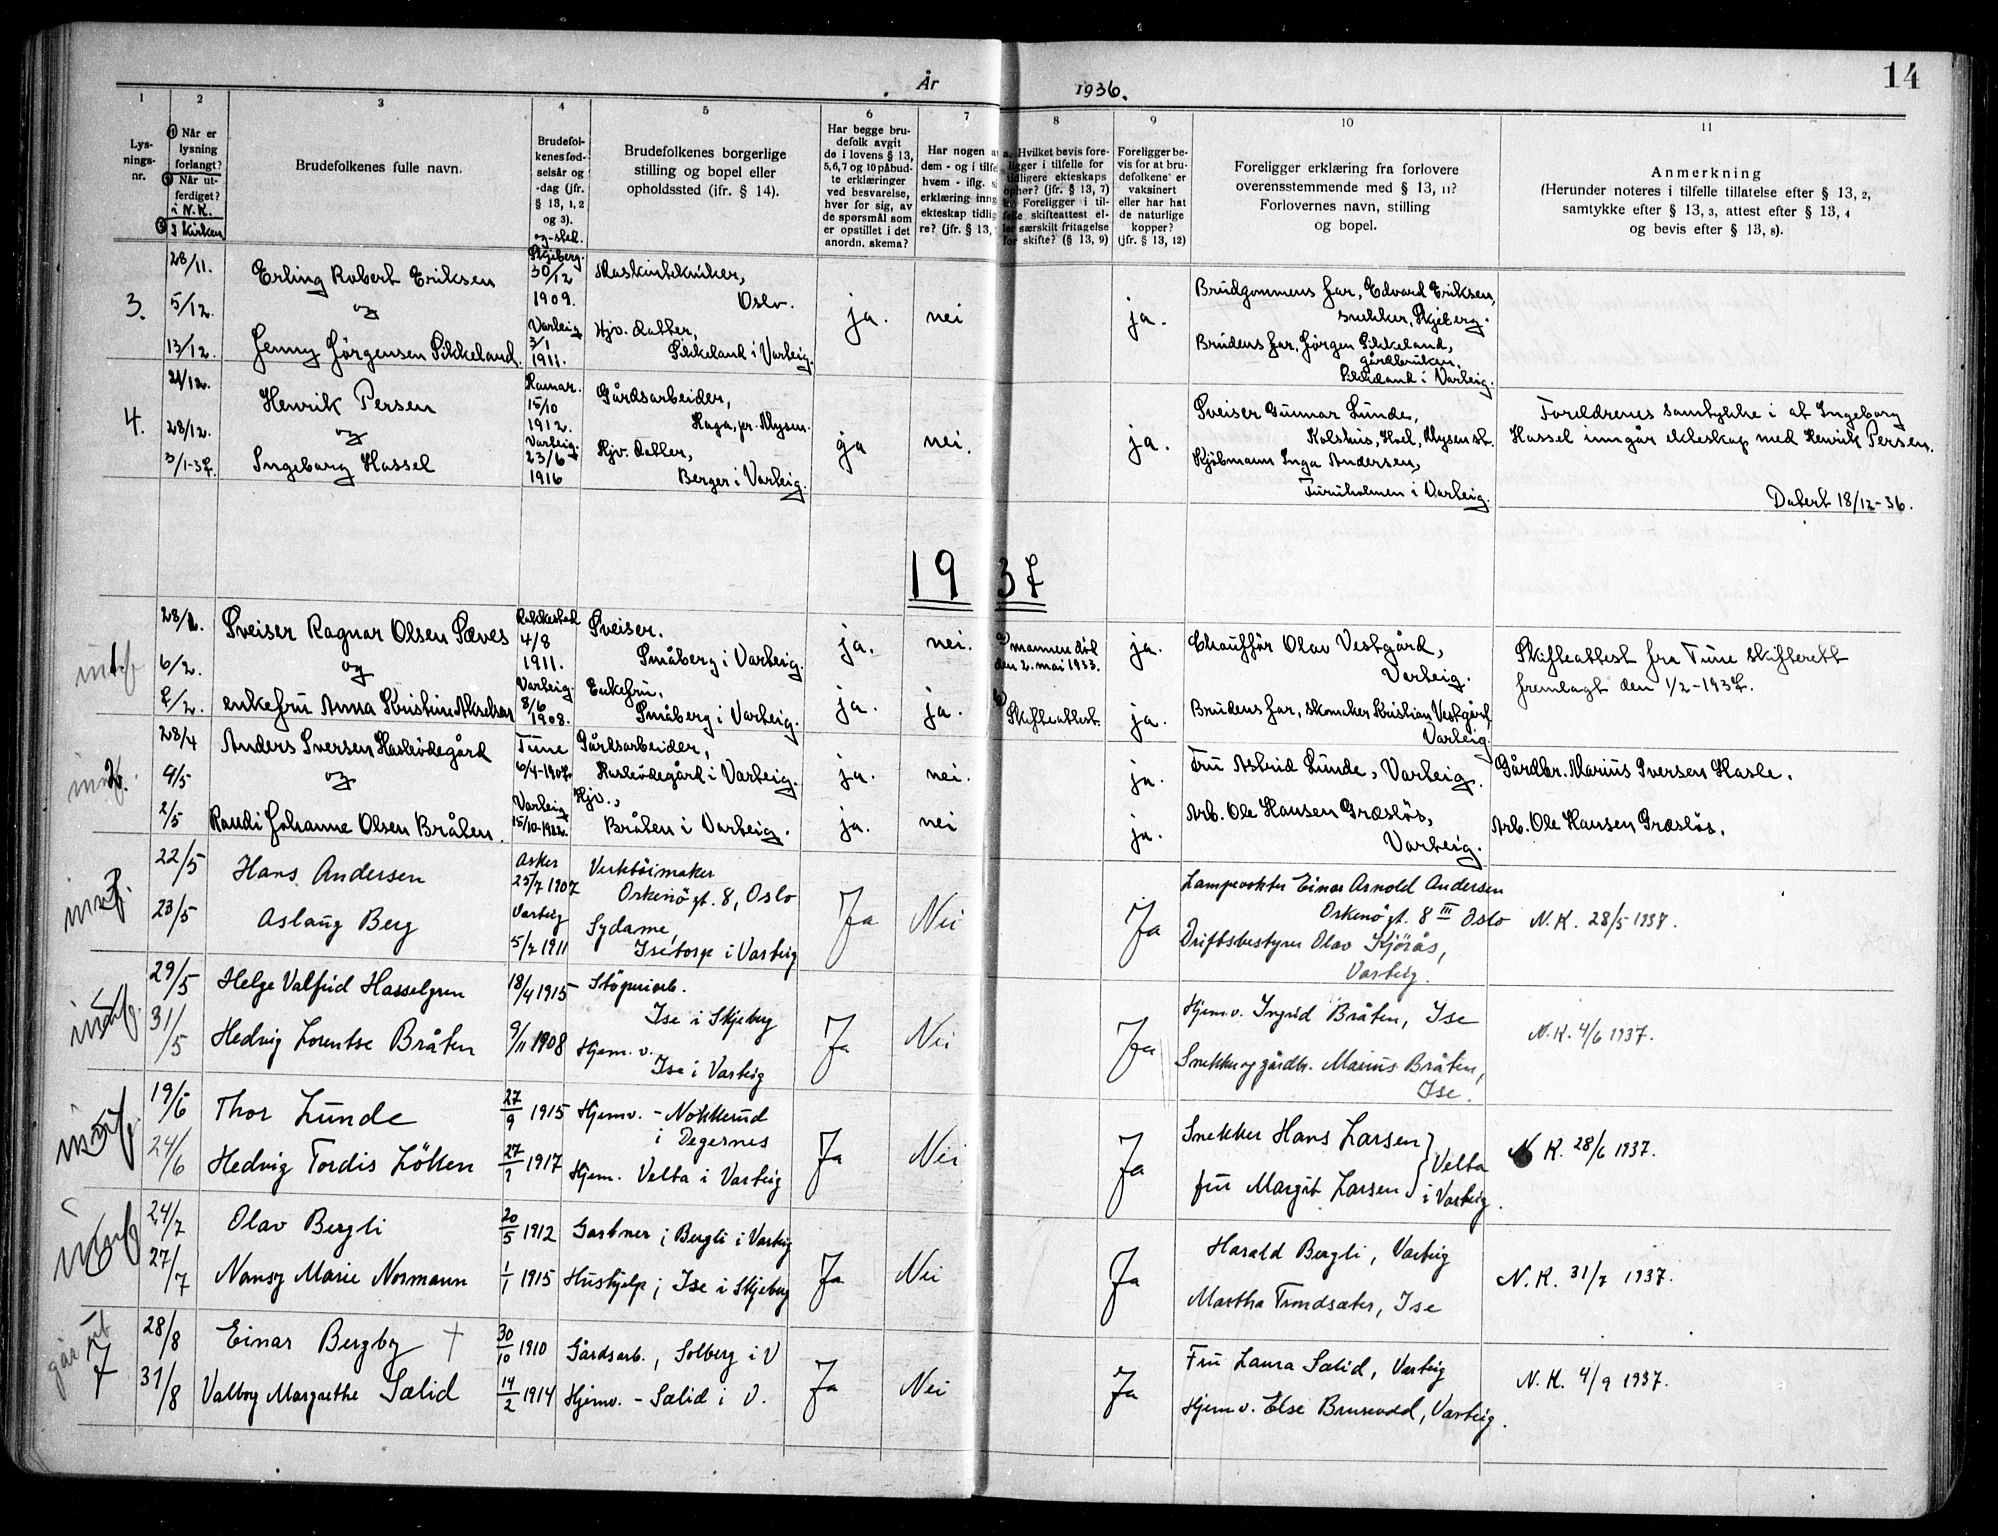 År 1936.
14
1
2
3
4
5
6
7
8
9
10
11
Lys-
nings-
nr.
Når er
lysning
forlangt?
Når ut-
ferdiget?
i N.K.
I Kirken
Brudefolkenes fulle navn.
Brudefol-
kenes fød-
selsår og
-dag (jfr.
§ 13, 1, 2
og 3).
og -sted.
Brudefolkenes borgerlige
stilling og bopel eller
opholdssted (jfr. § 14).
Har begge bru-
defolk avgit
de i lovens § 13,
5,6,7 og 10 påbud-
te erklæringer
ved besvarelse,
hver for sig, av
de spørsmål som
er opstillet i det
anordn. skema?
Har nogen a
dem - og i tilfe
hvem - iflg. s
erklæring inng
ekteskap tidlig
re? (jfr. § 13,
a. Hvilket bevis fore-
ligger i tilfelle for
tidligere ekteskaps
ophør? (jfr. § 13, 7)
b. Foreligger i til-
felle skifteattest el-
ler særskilt fritagelse
for skifte? (§ 13, 9)
Foreligger be-
vis for at bru-
defolkene er
vaksinert
eller har hat
de naturlige
kopper?
(jfr. § 13, 12)
Foreligger erklæring fra forlovere
overensstemmende med § 13, 11?
Forlovernes navn, stilling
og bopel.
Anmerkning
(Herunder noteres i tilfelle tillatelse efter § 13, 2,
samtykke efter § 13, 3, attest efter § 13, 4
og bevis efter § 13, 8).
3.
28/11.
5/12.
13/12.
Erling Robert Eriksen
og
Jenny Jørgensen Sikkeland.
Skjeberg.
30/12
1909.
Varteig
3/1
1911.
Maskintekniker,
Oslo.
Hjv. datter,
Sikkeland i Varteig.
ja.
nei
ja.
Brudgommens far, Edvard Eriksen,
snekker, Skjeberg.
Brudens far, Jørgen Sikkeland,
gårdbruker,
Sikkeland i Varteig.
4.
21/12.
28/12.
3/1-37.
Henrik Persen
og
Ingeborg Hassel
Ramar.
15/10
1912.
Varteig.
23/6
1916
Gårdsarbeider,
Haga, pr. Mysen.
Hjv. datter,
Berger i Varteig.
ja
nei.
ja.
Sveiser Gunnar Lunde,
Kolshus, Hoel, Mysen st.
Kjøbmann Inga Andersen,
Furuholmen i Varteig.
Foreldrenes samtykke i at Ingeborg
Hassel inngår ekteskap med Henrik Persen.
Datert 18/12-36.
1937
1
28/1.
6/2.
7/2.
Sveiser Ragnar Olsen Sæves
og
enkefru Anna Kristine Akselsen
Rakkestad
4/8
1911.
Varteig.
8/6
1908.
Sveiser.
Småberg i Varteig.
Enkefru.
Småberg i Varteig.
ja.
ja.
nei.
ja.
a) mannen död
den 2. mai 1933.
b) Skifteattest.
ja.
ja.
Chauffør Olav Vestgård,
Varteig.
Brudens far, skomaker Kristian Vestgård,
Varteig
Skifteattest fra Tune skifterett
fremlagt den 1/2-1937.
2.
23/4
9/5
2/5
Anders Iversen Hasleödegård
og
Randi Johanne Olsen Bråten.
Tune
6/4-1907
Varteig
15/10-1912.
Gårdsarbeider,
Hasleödegård i Varteig.
Hjv.,
Bråten i Varteig.
ja.
ja.
nei.
nei
ja.
ja.
Fru Astrid Lunde, Varteig.
Arb. Ole Hansen Græslös,
Varteig.
Gårdbr. Marius Iversen Hasle.
Arb. Ole Hansen Græslös.
3.
22/5
23/5
Hans Andersen
Aslaug Berg
Asker
25/7 1907
Varteig
5/2 1911
Verktöimaker
Orkenögt. 8, Oslo
Sydame,
Isetorp i Varteig
Ja
Nei
Ja
Lampevokter Einar Arnold Andersen
Orkenögt. 8 III Oslo
Driftsbestyrer Olav Kjörås,
Varteig.
N. K. 28/5 1937.
29/5
31/5
Helge Valfrid Hasselgren
Hedvig Lorentse Bråten
18/4 1915
9/11 1908
Stöperiarb.
Ise i Skjeberg
Hjem. v.
Ise i Varteig
Ja
Nei
Ja
Hjem. v. Ingrid Bråten, Ise
Snekker og gårdbr. Marius Bråten,
Ise.
N. K. 4/6 1937.
19/6
24/6
Thor Lunde
Hedvig Tordis Lökken
27/9 1915
27/1 1917
Hjemv. - Nokkerud
i Degernes
Hjem. Velta i Varteig
Ja
Nei
Ja
Snekker Hans Larsen
fru Margit Larsen
Velta
i Varteig.
N. K. 28/6 1937.
24/7
27/7
Olav Bergli
Nansy Marie Normann
20/5 1912
1/1 1915
Gartner; Bergli i Varteig
Hushjelp; Ise i Skjeberg
Ja
Nei
Ja
Harald Bergli, Varteig
Martha Trondsæter, Ise
N. K. 31/7 1937.
går ut
7
28/8
31/8
Einar Bergby +
Valborg Margrethe Sælid
30/10 1910
14/2 1914
Gårdsarb., Solberg i V
Hjemv. - Sælid i V.
Ja
Nei
Ja
Fru Laura Sælid, Varteig
Hjem v. Else Brusevold, Varteig.
N. K. 4/9 1937.